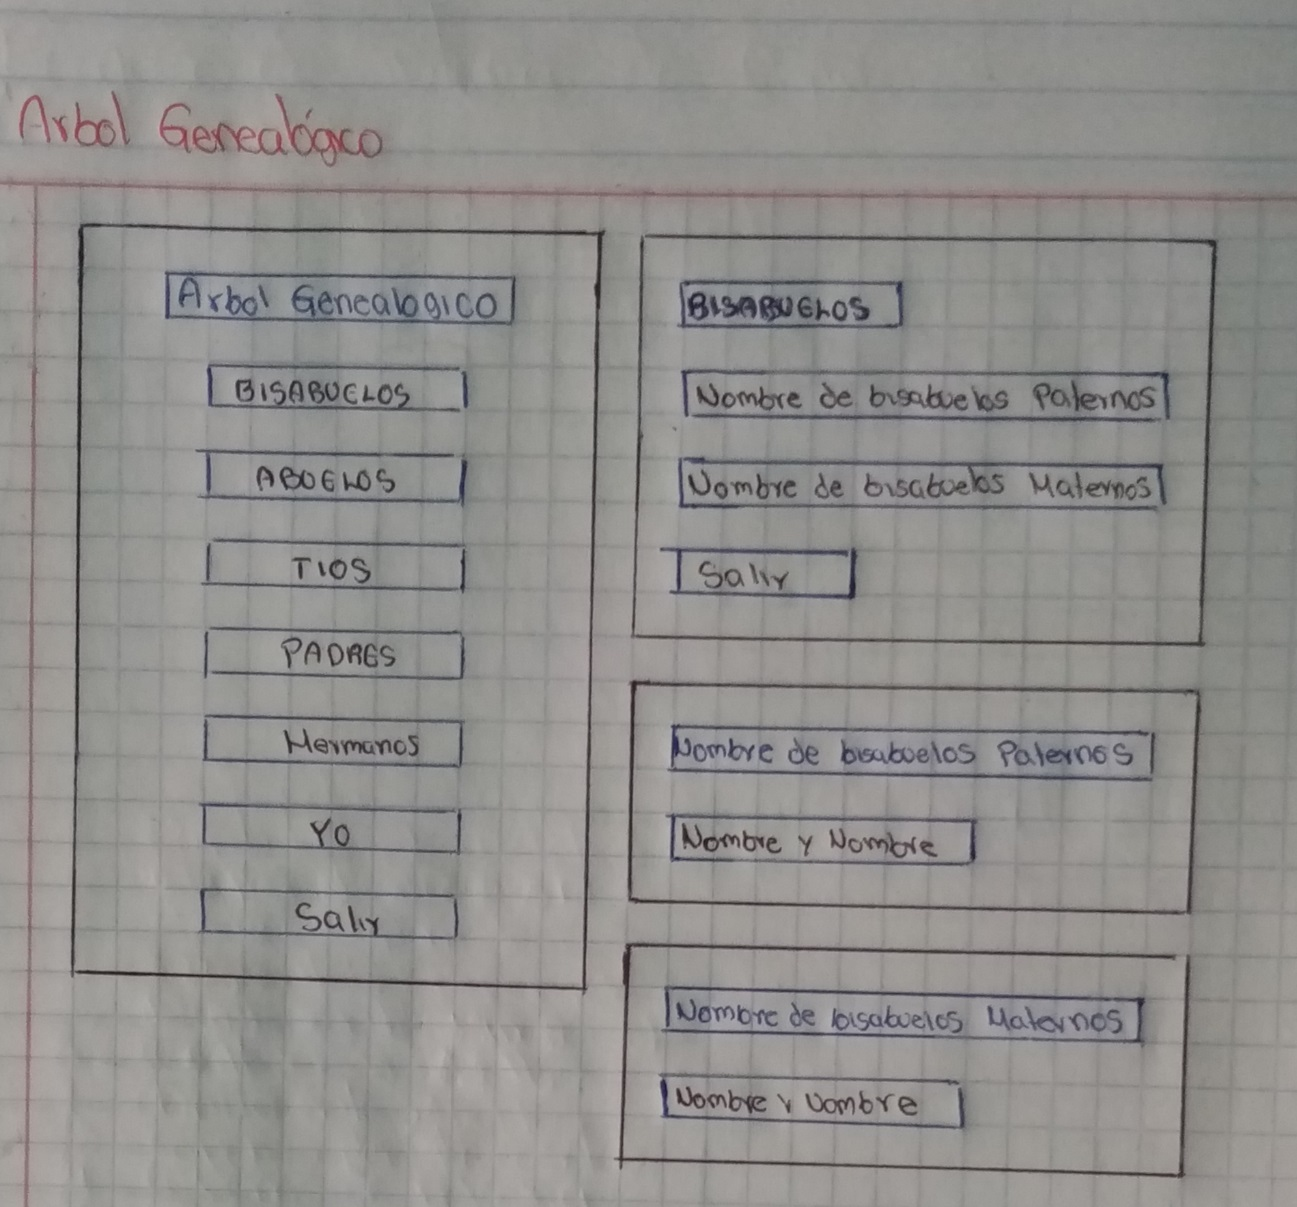 Arbol Genealógico
Arbol Genealogico
BISABUELOS
ABUELOS
TIOS
PADRES
Hermanos
YO
Salir
BISABUELOS
Nombre de bisabuelos Paternos
Nombre de bisabuelos Maternos
Salir
Nombre de bisabuelos Paternos
Nombre y Nombre
Nombre de bisabuelos Maternos
Nombre y Nombre